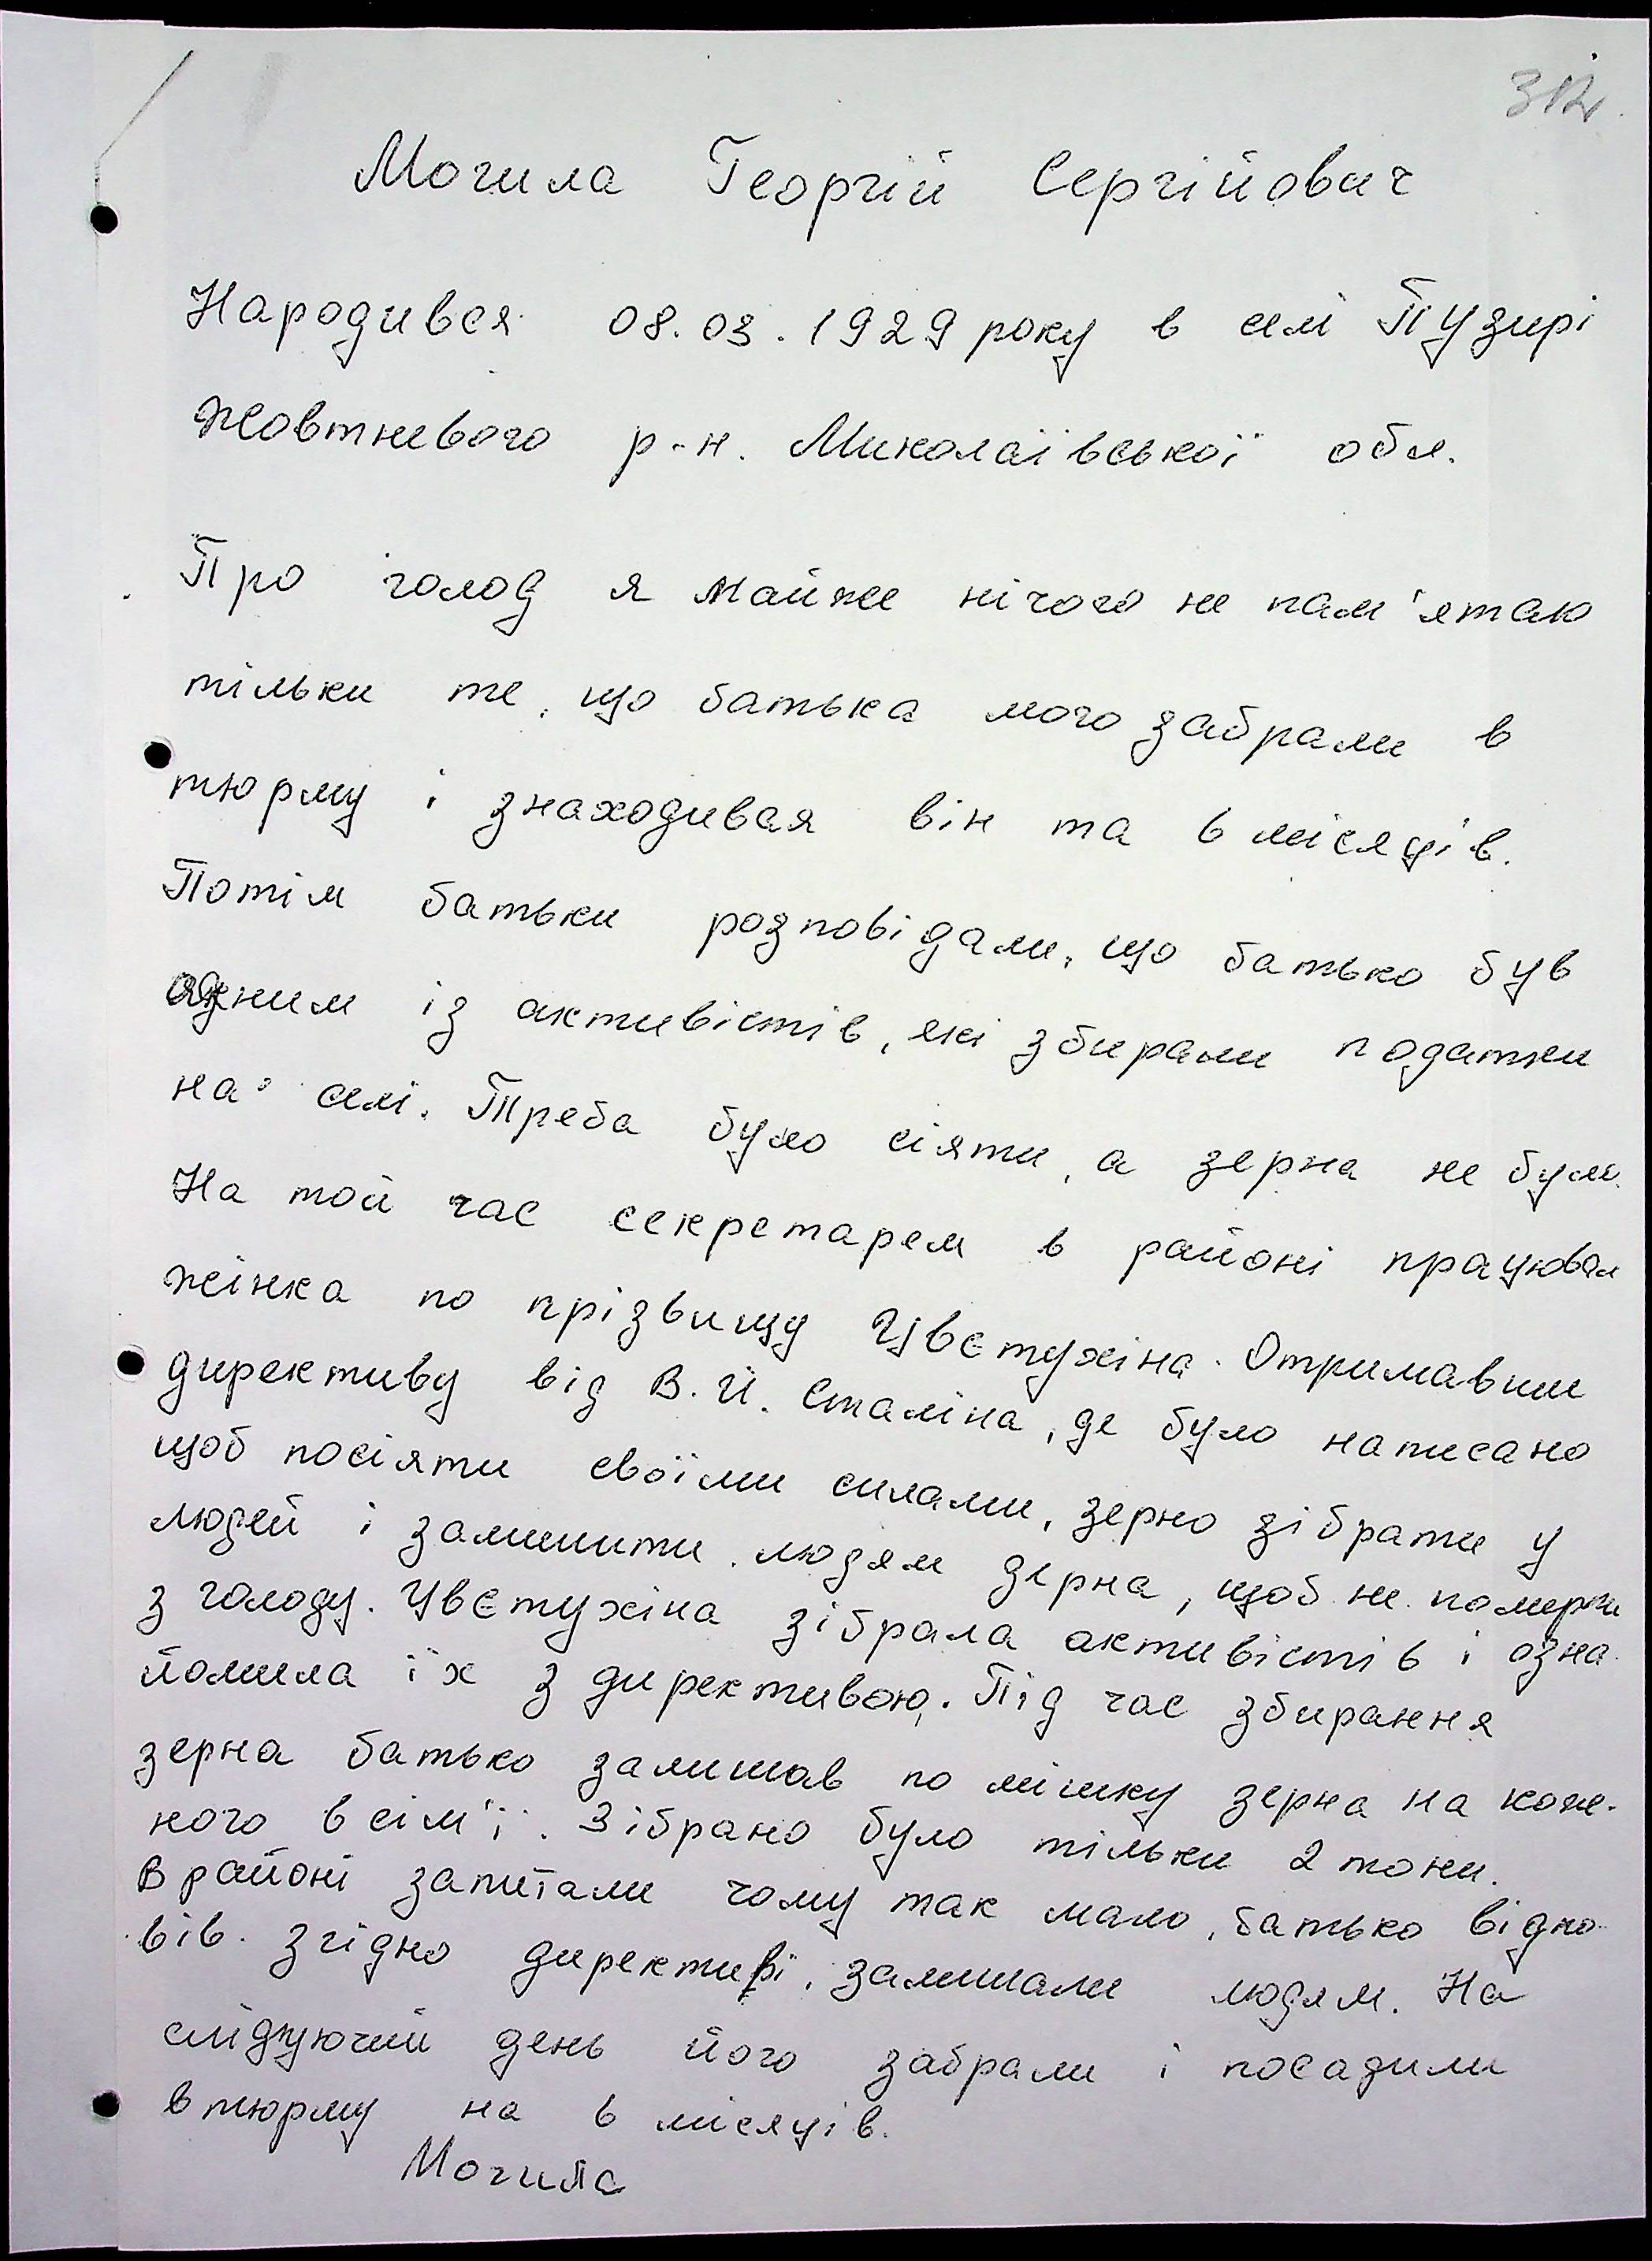 312
Могила Георгій Сергійович
Народився 08.03.1929 року в селі Пузирі
Жовтневого р-н. Миколаївської обл.
Про голод я майже нічого не пам'ятаю
тільки те, що батька мого забрали в
тюрму і знаходився він та 6 місяців.
Потім батьки розповідали, що батько був
одним із активістів, які збирали податки
на селі. Треба було сіяти, а зерна не було.
На той час секретарем в районі працювал
жінка по прізвищу Цвєтухіна. Отримавши
директиву від В.Й. Сталіна, де було написано
щоб посіяти своїми силами, зерно зібрати у
людей і залишити людям зерна, щоб не померти
з голоду. Цвєтухіна зібрала активістів і озна-
йомила їх з директивою. Під час збирання
зерна батько залишав по мішку зерна на кож-
ного в сім'ї. Зібрано було тільки 2 тони.
В районі запитали чому так мало, батько відпо-
вів. згідно директиві, залишали людям. На
слідуючий день його забрали і посадили
в тюрму на 6 місяців.
Могила